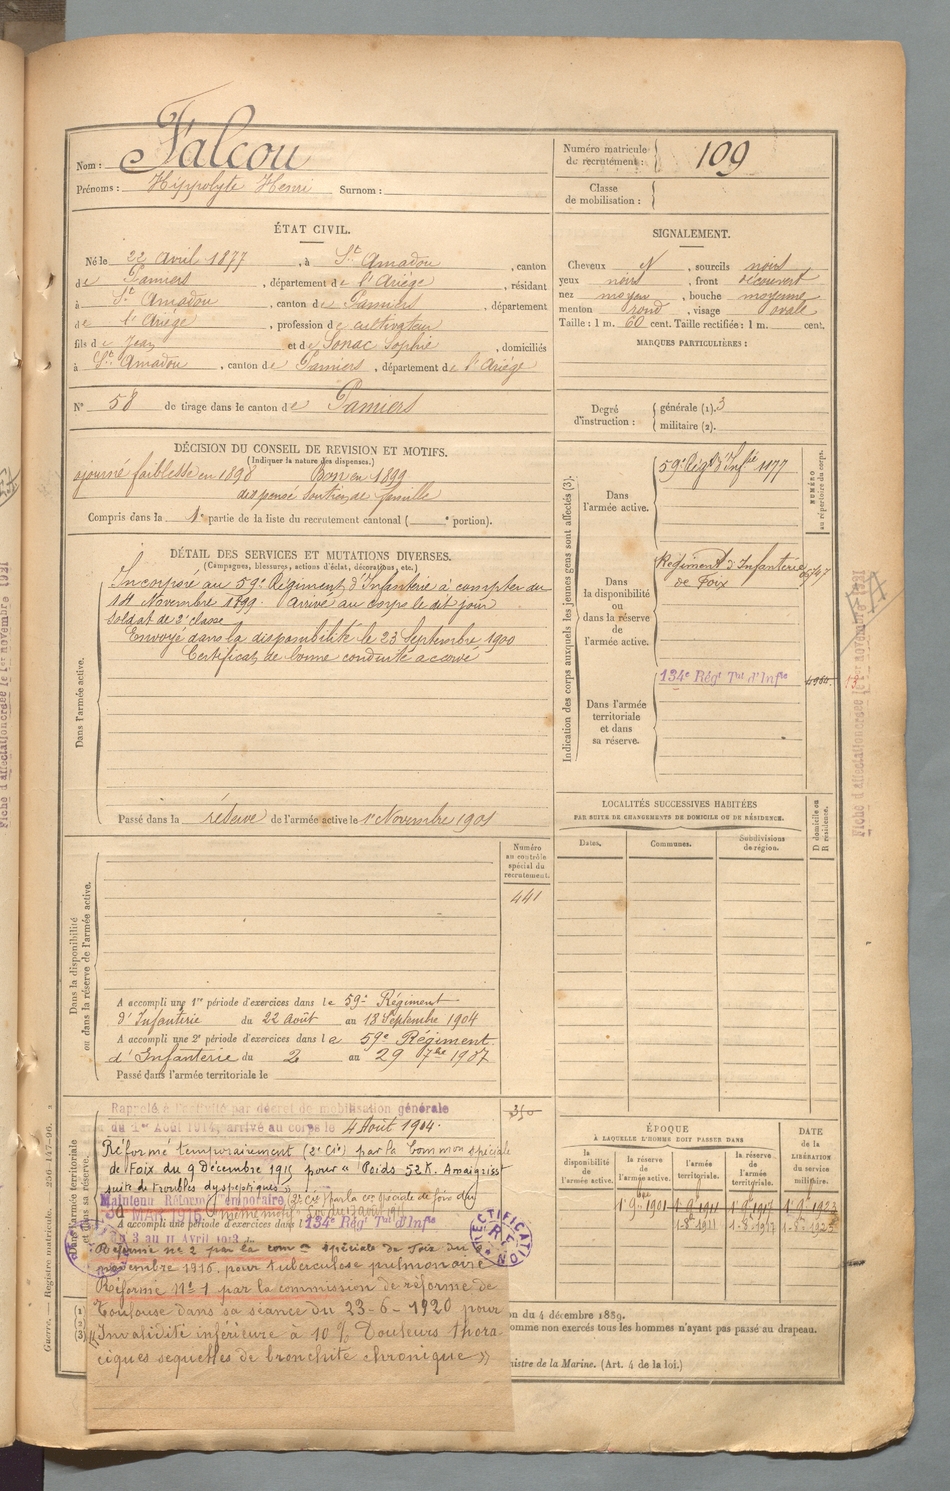 Nom : Falcou
Prénoms : Hippolyte Henri Surnom :
Numéro matricule de recrutement : 109
Classe de mobilisation :
ÉTAT CIVIL.
Né le 22 Avril 1877, à St Amadou, canton
de Pamiers, département de l'Ariège, résidant
à St Amadou, canton de Pamiers, département
de l'Ariège, profession de cultivateur
fils de Jean et de Sonac Sophie, domiciliés
à St Amadou, canton de Pamiers, département de l'Ariège
N° 58 de tirage dans le canton de Pamiers
SIGNALEMENT.
Cheveux N, sourcils noirs
yeux noirs, front découvert
nez moyen, bouche moyenne
menton rond, visage ovale
Taille : 1 m. 60 cent. Taille rectifiée : 1 m. cent.
MARQUES PARTICULIÈRES :
Degré d'instruction : générale (1). 3
militaire (2).
DÉCISION DU CONSEIL DE REVISION ET MOTIFS.
(Indiquer la nature des dispenses.)
ajourné faiblesse en 1898 Bon en 1899
dispensé soutien de famille
Compris dans la 1e partie de la liste du recrutement cantonal ( e portion).
DÉTAIL DES SERVICES ET MUTATIONS DIVERSES.
(Campagnes, blessures, actions d'éclat, décorations, etc.)
Dans l'armée active.
Incorporé au 59e Régiment d'Infanterie à compter du
14 Novembre 1899. Arrivé au corps le dit jour
Soldat de 2e classe
Envoyé dans la disponibilité le 23 Septembre 1900
Certificat de bonne conduite accordé
Passé dans la réserve de l'armée active le 1er Novembre 1901
Indication des corps auxquels les jeunes gens sont affectés (3).
NUMÉRO au répertoire du corps.
Dans l'armée active.
59e Régt d'Infie 1177
Dans la disponibilité ou dans la réserve de l'armée active.
Régiment d'Infanterie
de Foix
Dans l'armée territoriale et dans sa réserve.
134e Régt Tal d'Infie
Fiche d'affectation créée le 1er novembre 1921
LOCALITÉS SUCCESSIVES HABITÉES
PAR SUITE DE CHANGEMENTS DE DOMICILE OU DE RÉSIDENCE.
Dates. Communes. Subdivisions de région. D domicile ou R résidence.
Dans la disponibilité ou dans la réserve de l'armée active.
Numéro au contrôle spécial du recrutement.
441
A accompli une 1re période d'exercices dans le 59e Régiment
d'Infanterie du 22 Août au 18 Septembre 1904
A accompli une 2e période d'exercices dans le 59e Régiment
d'Infanterie du 2 au 29 7bre 1907
Passé dans l'armée territoriale le
350
Rappelé à l'activité par décret de mobilisation générale
du 1er Août 1914, arrivé au corps le 4 Août 1914.
Réformé temporairement (2e Cie) par la Common spéciale
de Foix du 9 Décembre 1915 pour « Poids 52 K. Amaigrist
suite de troubles dyspeptiques »
Maintenu Réformé Temporaire (2e Cie) par la Con spéciale de Foix du
MAR 1916
A accompli une période d'exercices dans le 134e Régt Tal d'Infie
du 3 au 11 Avril 1913
RECTIFICATION
Réformé n° 2 par la comon spéciale de Foix du
novembre 1916. pour tuberculose pulmonaire
Réformé N° 1 par la commission de réforme de
Toulouse dans sa séance du 23-6-1920 pour
« Invalidité inférieure à 10 % Douleurs thora
ciques sequelles de bronchite chronique »
ÉPOQUE
À LAQUELLE L'HOMME DOIT PASSER DANS
la disponibilité de l'armée active.
la réserve de l'armée active.
l'armée territoriale.
la réserve de l'armée territoriale.
DATE de la LIBÉRATION du service militaire.
1er 9bre 1901 1-9-1911 1-9-1917 1-9-1923
1-8-1911 1-8-1917 1-8-1923
on du 4 décembre 1889.
omme non exercés tous les hommes n'ayant pas passé au drapeau.
nistre de la Marine. (Art. 4 de la loi.)
Guerre. — Registre matricule. 256-147-96.